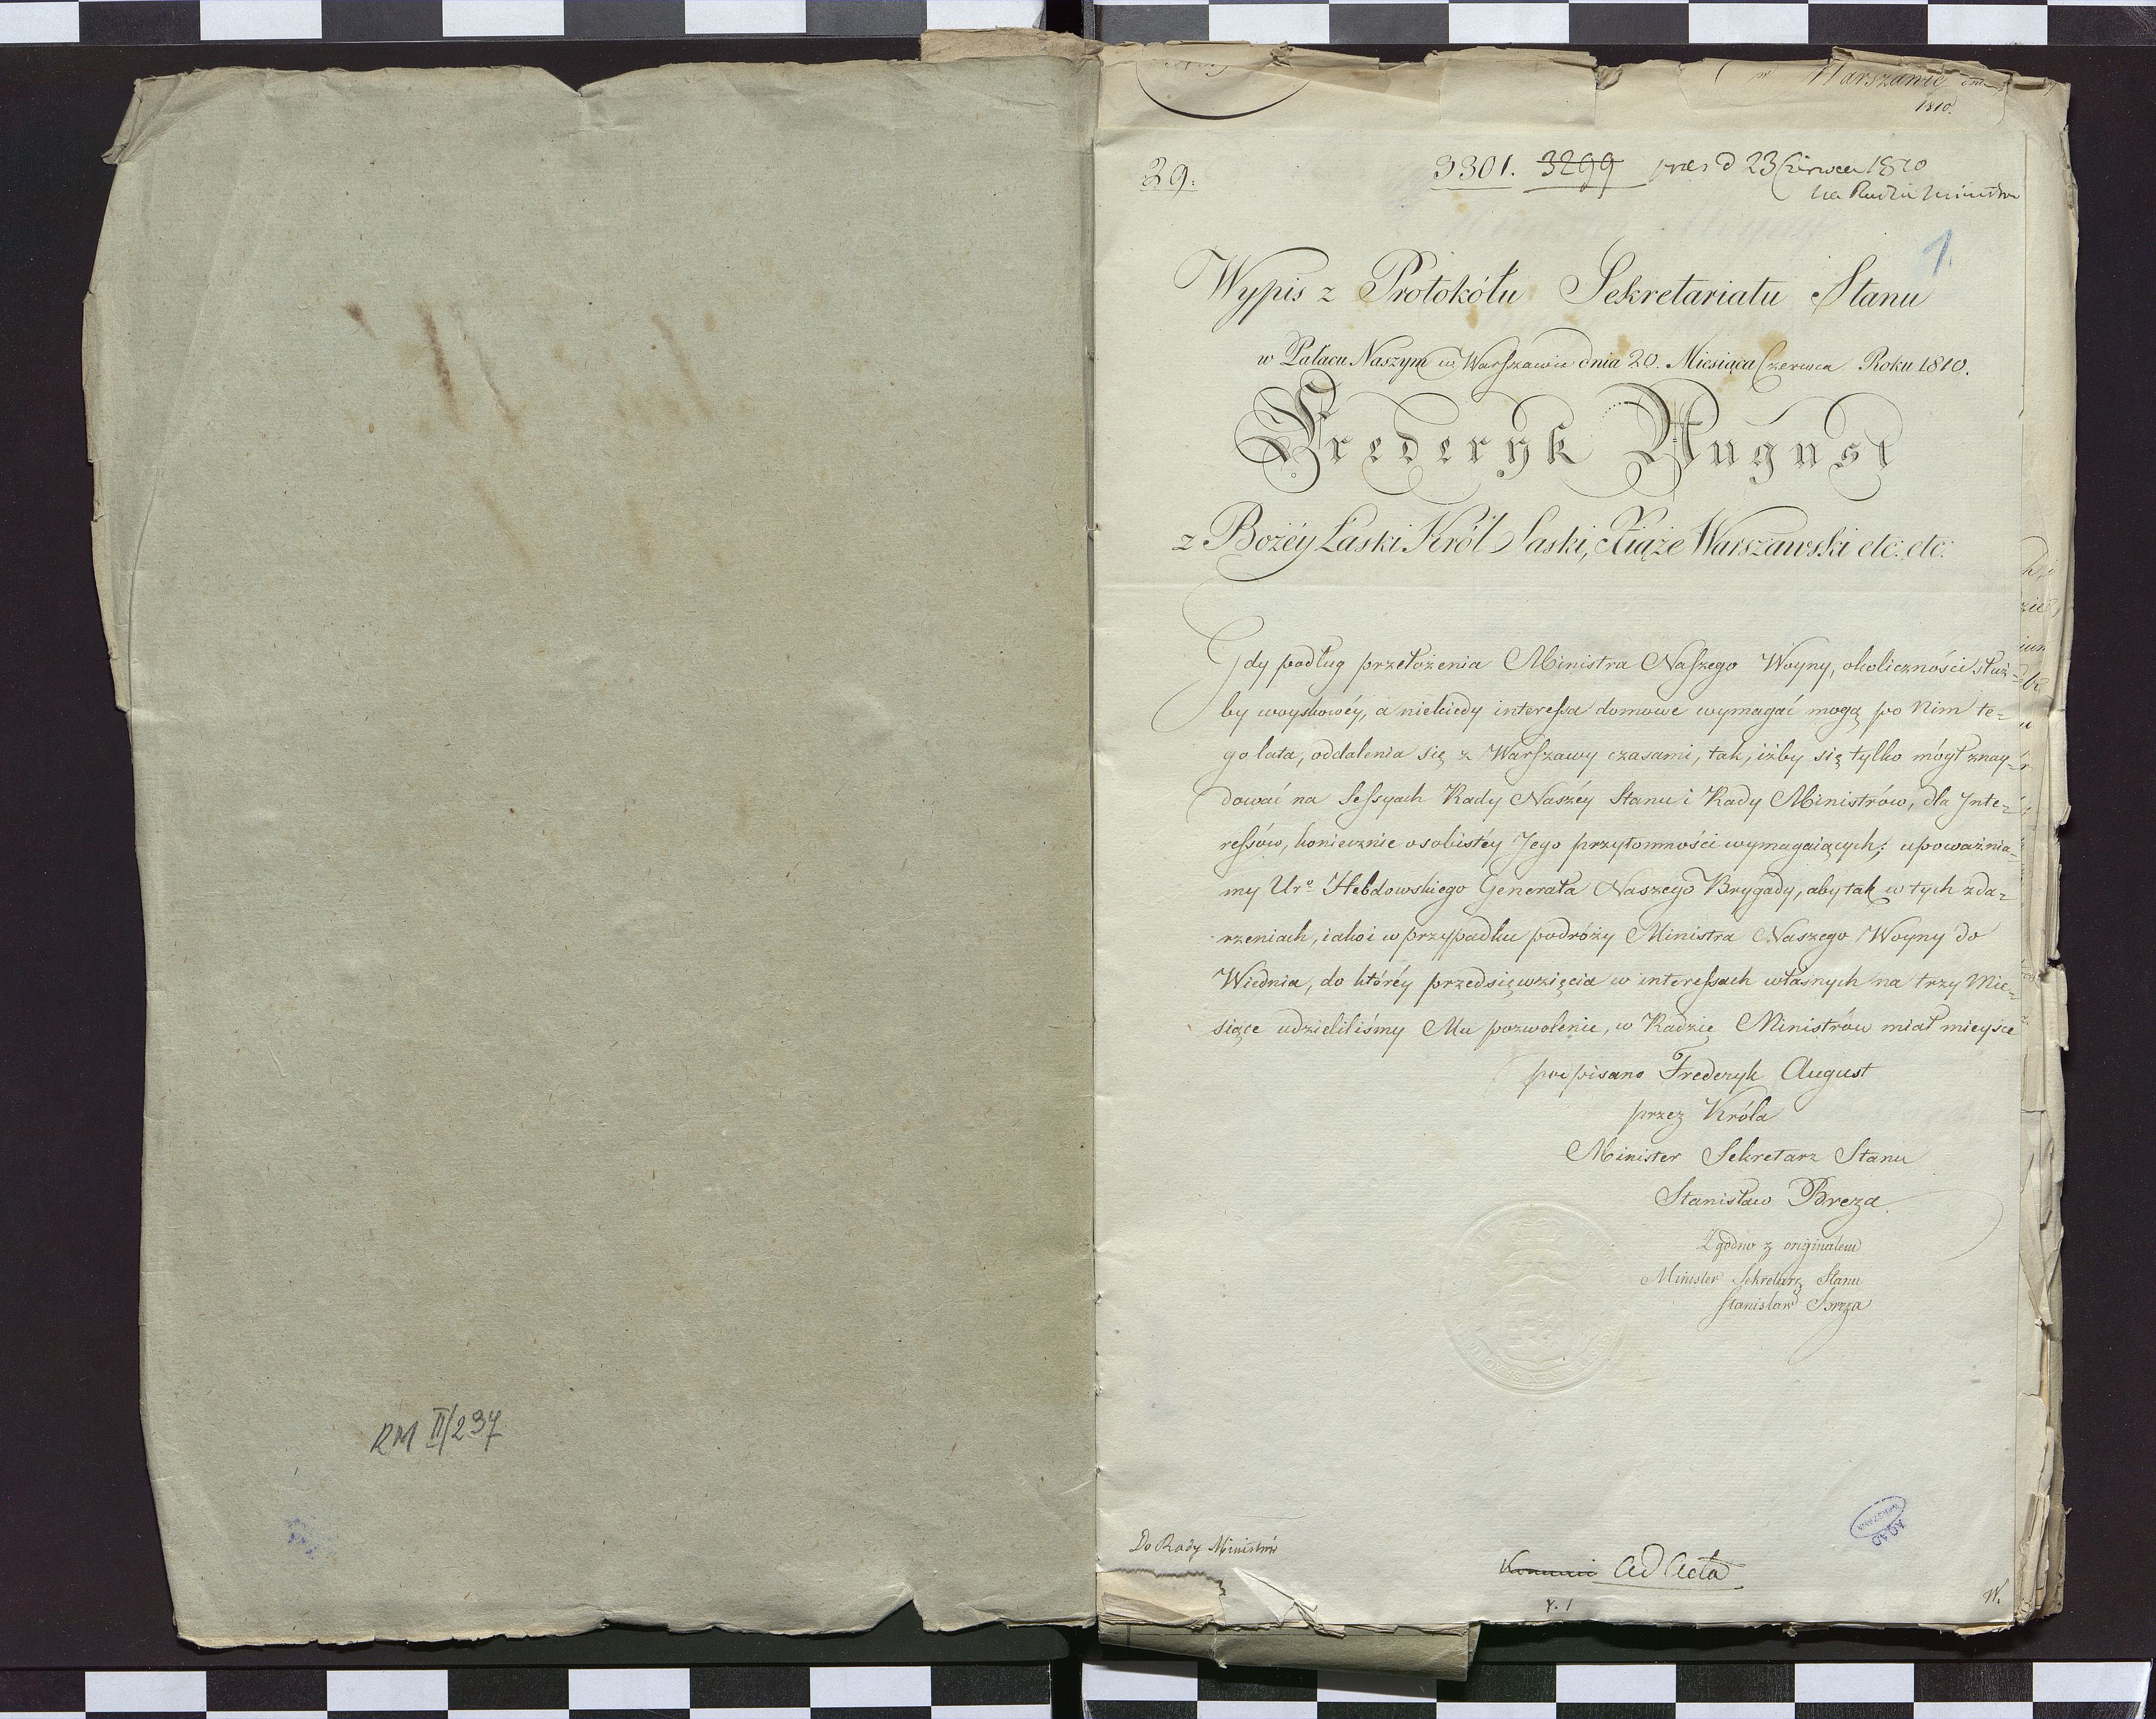 RM II/237
Warszawie
1810.
29. 3301. 3299 pres d 23 Czerwca 1810
na Radzie Ministrów
1.
Wypis z Protokółu Sekretariatu Stanu
w Pałacu Naszym w Warſzawie dnia 20. Miesiąca Czerwca Roku 1810.
Frederyk August
z Bożéy Łaski Król Saski, Xiąże Warszawski etc: etc:
Gdy podług przełożenia Ministra Naſzego Woyny, okoliczności służ=
by woyskowéy, a niekiedy intereſsa domowe wymagać mogą po Nim te=
go lata, oddalenia się z Warſzawy czasami, tak, iżby się tylko mógł znay=
dować na Seſsyach Rady Naszéy Stanu i Rady Ministrów, dla Inte=
reſsów, koniecznie osobistéy Jego przytomności wymagaiących; upoważnia=
my Uro Hebdowskiego Generała Naszego Brygady, aby tak w tych zda=
rzeniach, iako i w przypadku podróży Ministra Naszego Woyny do
Wiednia, do któréy przedsięwzięcia w intereſsach własnych na trzy Mie=
siące udzieliliśmy Mu pozwolenie, w Radzie Ministrów miał mieysce
podpisano Frederyk August
przez Króla
Minister Sekretarz Stanu
Stanisław Breza.
Zgodno z originałem
Minister Sekretarz Stanu
Stanisław Breza
Do Rady Ministrów
AGAD
WARSZAWA
ad Acta
r. 1
W.